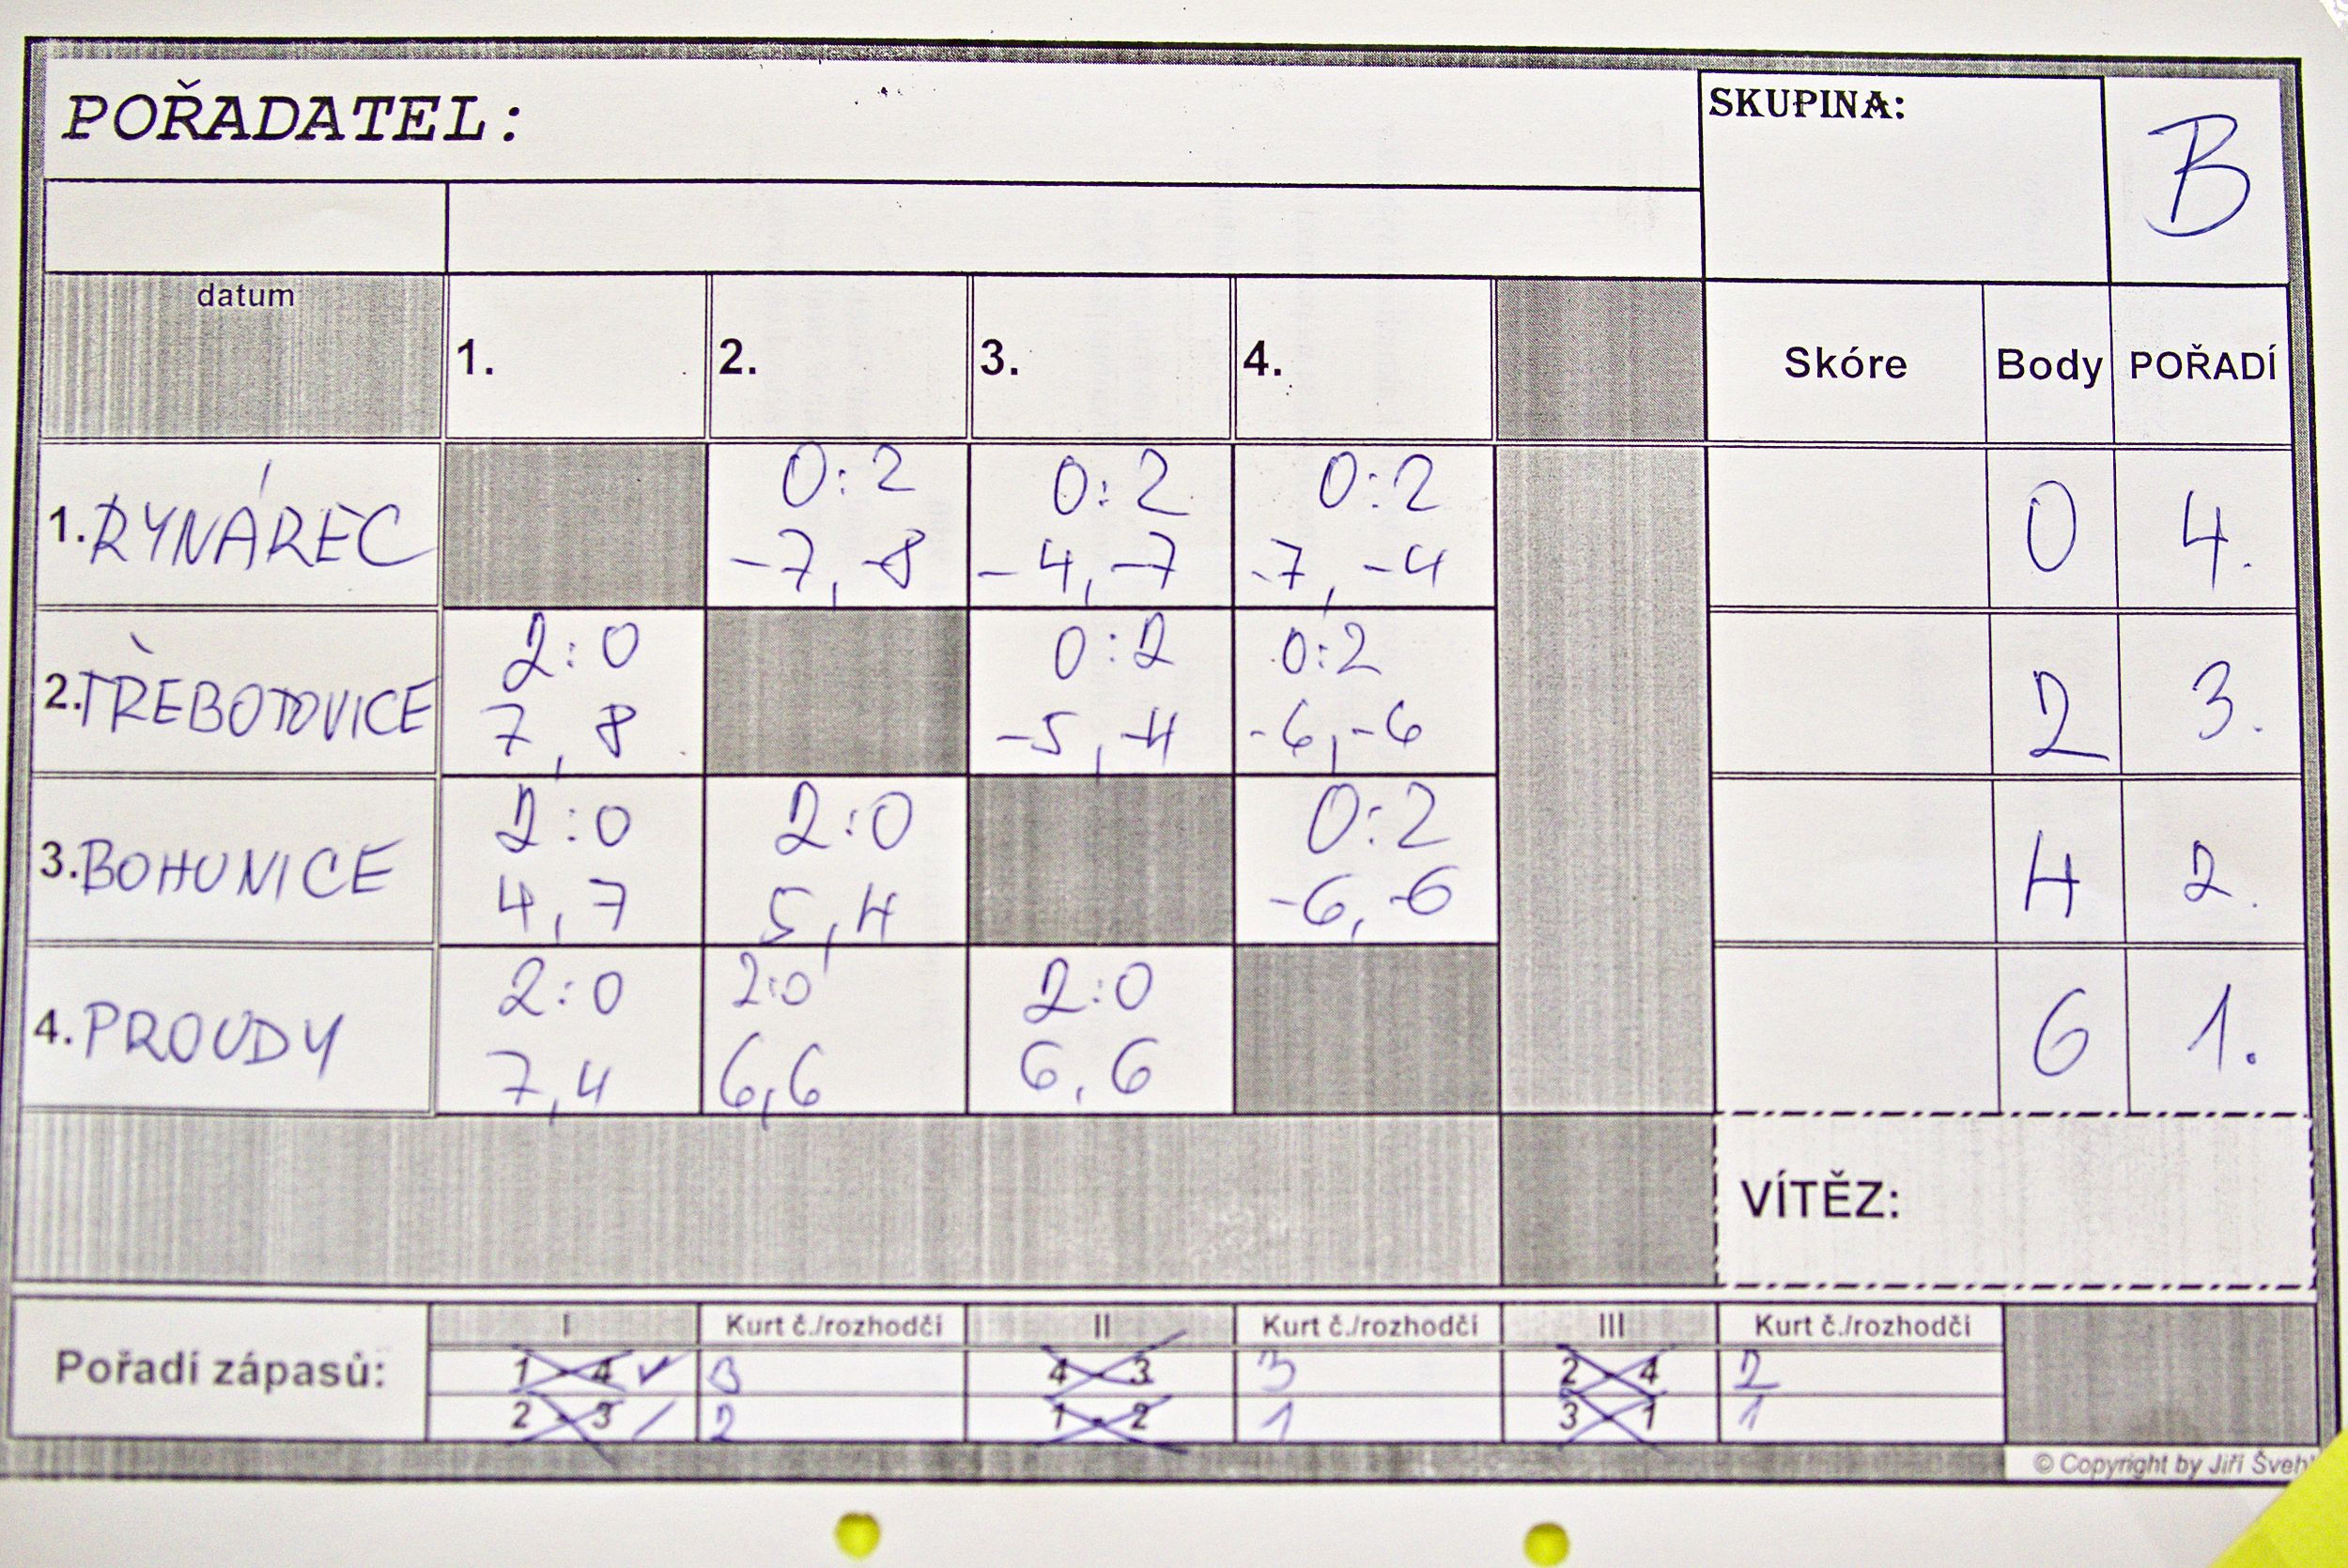 POŘADATEL:
SKUPINA:
B
datum
1. 2. 3. 4. Skóre Body POŘADÍ
1. RYNÁREC 0:2 0:2 0:2 0 4.
-7, -8 -4, -7 -7, -4
2. TŘEBOTOVICE 2:0 0:2 0:2 2 3.
7, 8 -5, -4 -6, -6
3. BOHUNICE 2:0 2:0 0:2 4 2.
4, 7 5, 4 -6, -6
4. PROUDY 2:0 2:0 2:0 6 1.
7, 4 6, 6 6, 6
VÍTĚZ:
I Kurt č./rozhodčí II Kurt č./rozhodčí III Kurt č./rozhodčí
Pořadí zápasů:
1 - 4 3 4 - 3 3 2 - 4 2
2 - 3 2 1 - 2 1 3 - 1 1
© Copyright by Jiří